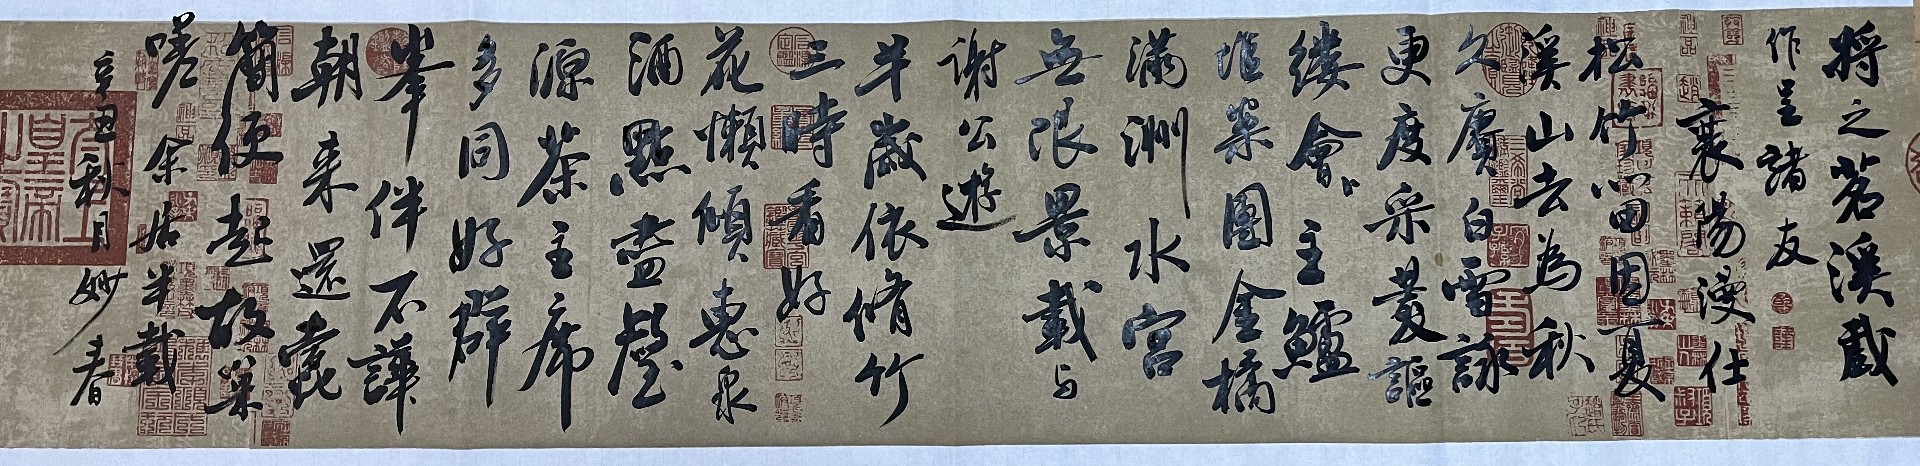 將之苕溪戲
作呈諸友
襄陽漫仕
松竹留因夏
溪山去為秋
久賡白雪詠
更度采菱謳
縷會玉鱸
堆案團金橘
滿洲水宮
無限景載与
謝公遊
半歲依脩竹
三時看好
花懶傾惠泉
酒點盡壑
源茶主席
多同好群
峯伴不譁
朝来還蠹
簡便起故巢
嗟余居半載
辛丑秋月妙春